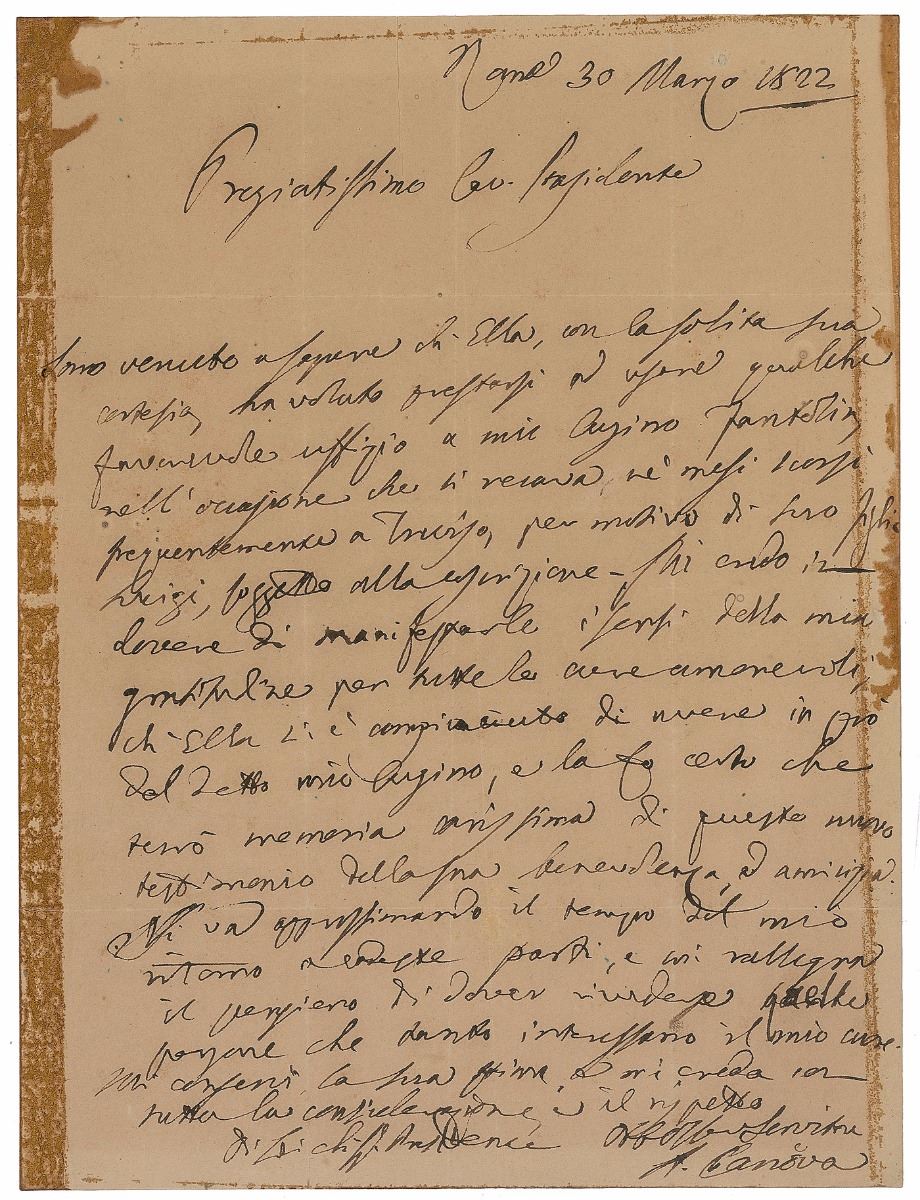 Roma 30 Marzo 1822
Pregiatissimo Cav. Presidente
Sono venuto a sapere ch'Ella, con la solita sua
cortesia, ha voluto prestarsi ad usare qualche
favorevole uffizio a mio Cugino Fantolin,
nell'occasione che si recava, ne' mesi scorsi
frequentemente a Treviso, per motivo di suo figlio
Luigi, soggetto alla coscrizione - Mi credo in
dovere di manifestarle i sensi della mia
gratitudine per tutte le cure amorevoli,
ch'Ella si è compiaciuto di avere in prò
del detto mio Cugino, e la fo certo che
terrò memoria carissima di questo nuovo
testimonio della sua benevolenza, ed amicizia.
Si va approssimando il tempo del mio
ritorno a codeste parti, e mi rallegra
il pensiero di dover rivedere quelle
persone che tanto interessano il mio cuore.
Mi conservi la sua stima, e mi creda con
tutta la considerazione, e il rispetto
Di Lei chiss. Presidente Obb. Servitore
A. Canova